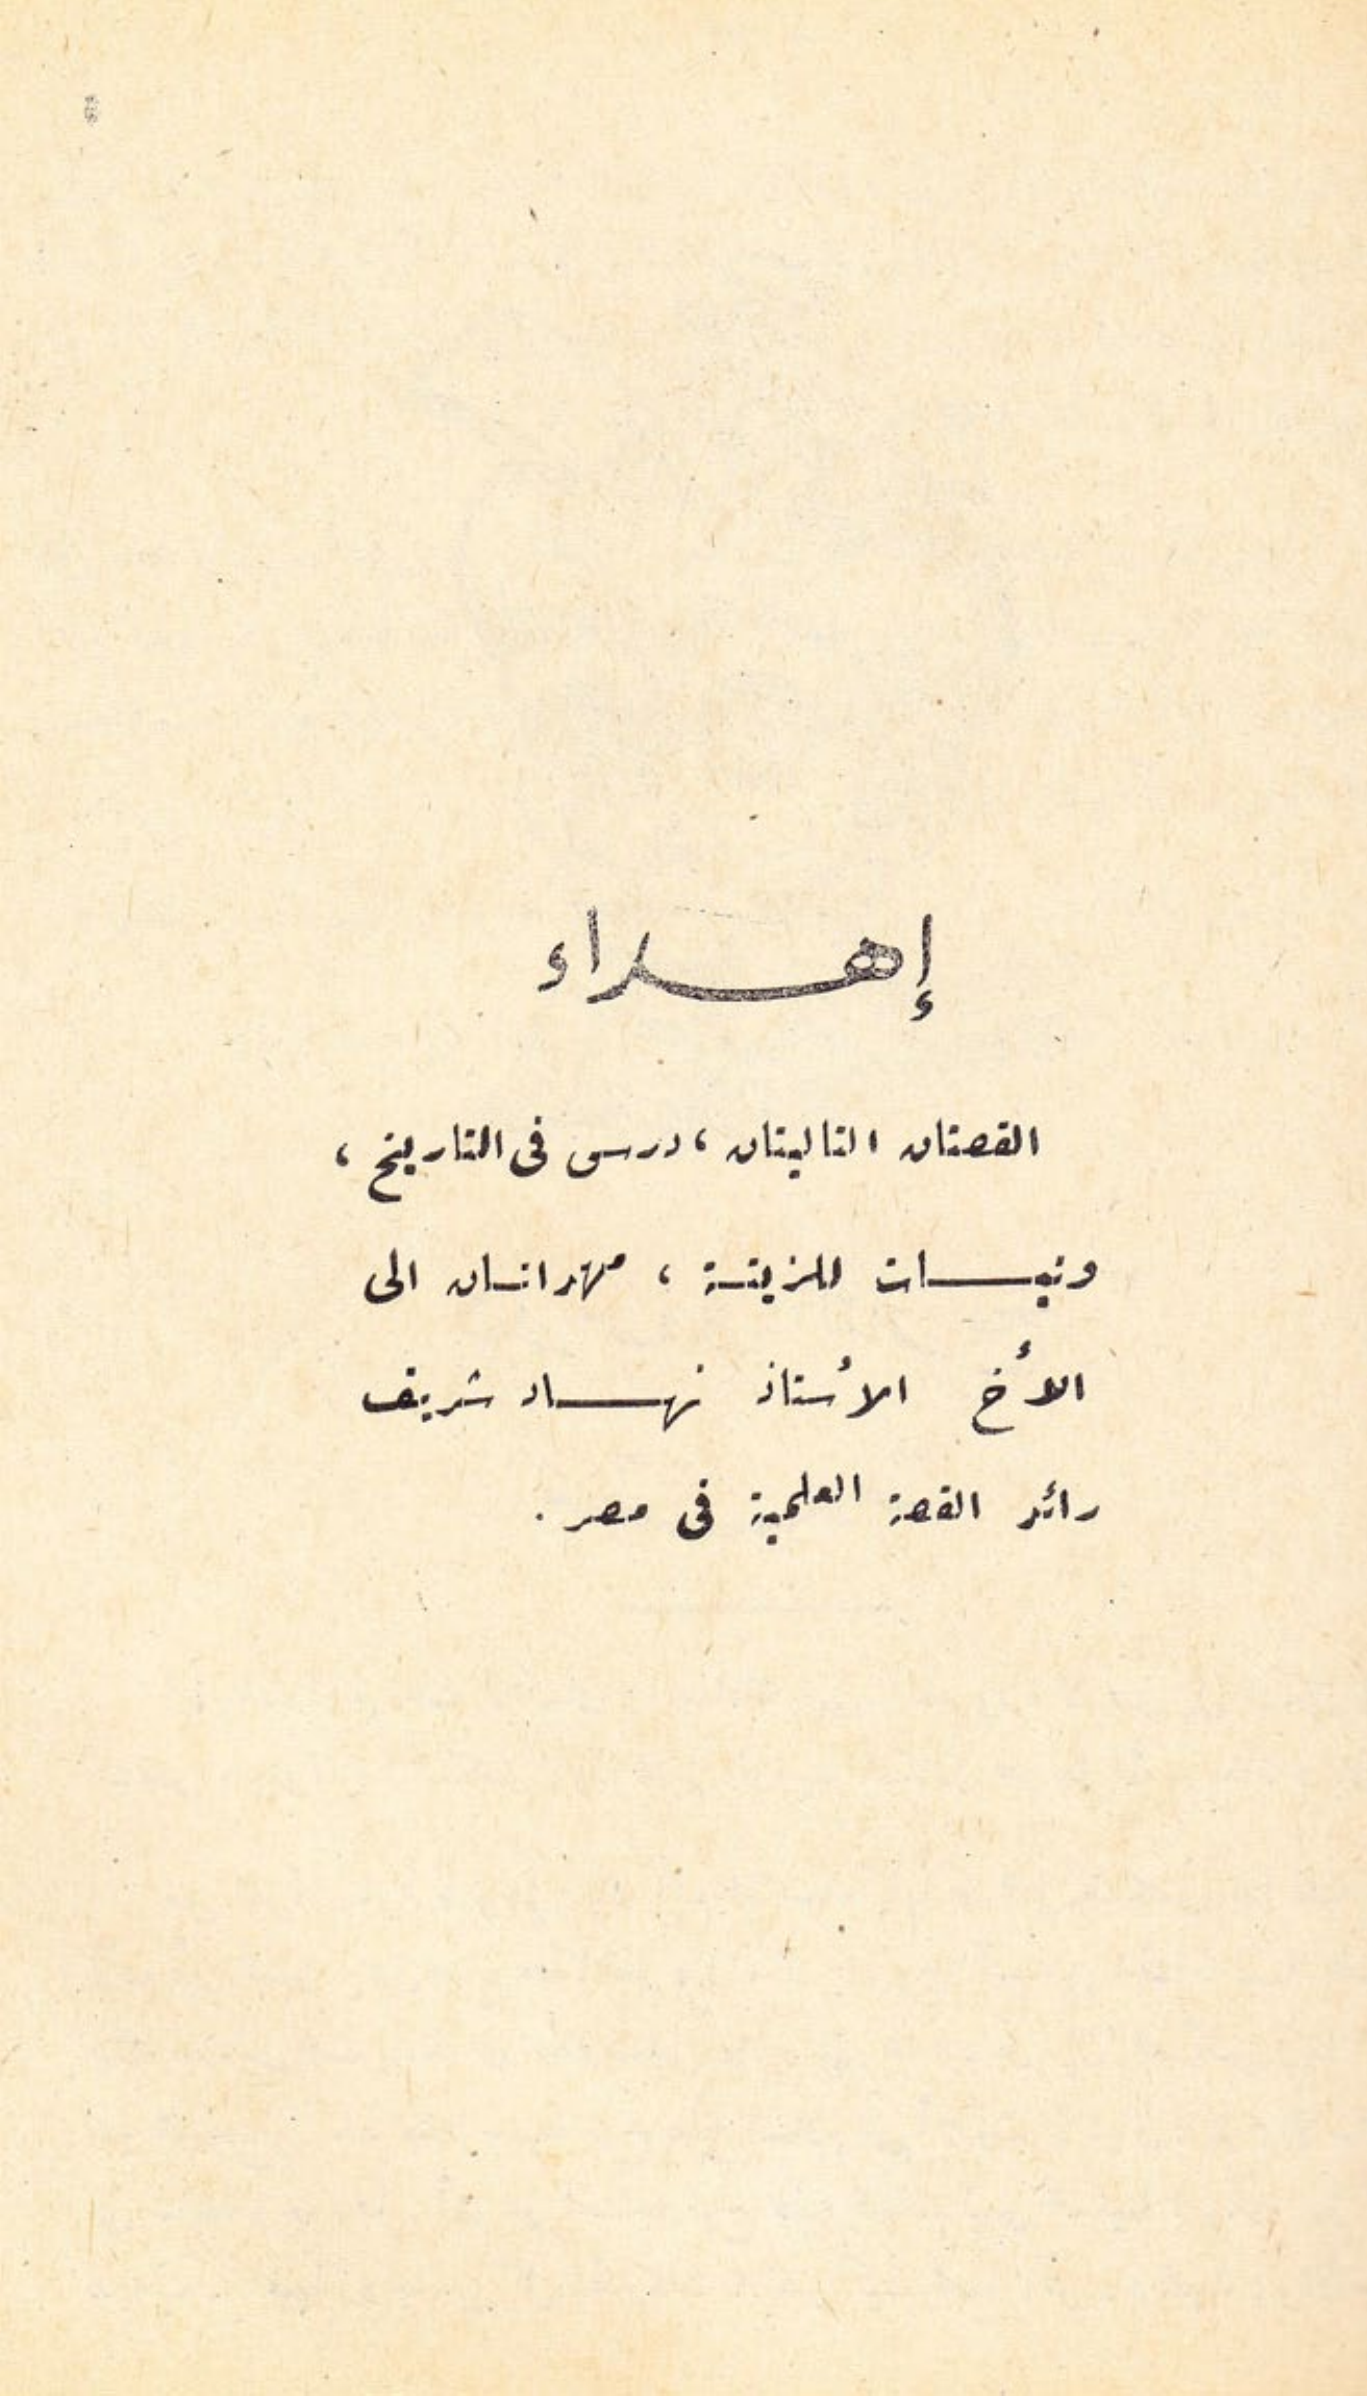 إهداء
القصتان التاليتان ، درس فى التاريخ ،
ونبــات للزينــة ، مهداتــان الى
الأخ الأستاذ نهــاد شريف
رائد القصة العلمية فى مصر .